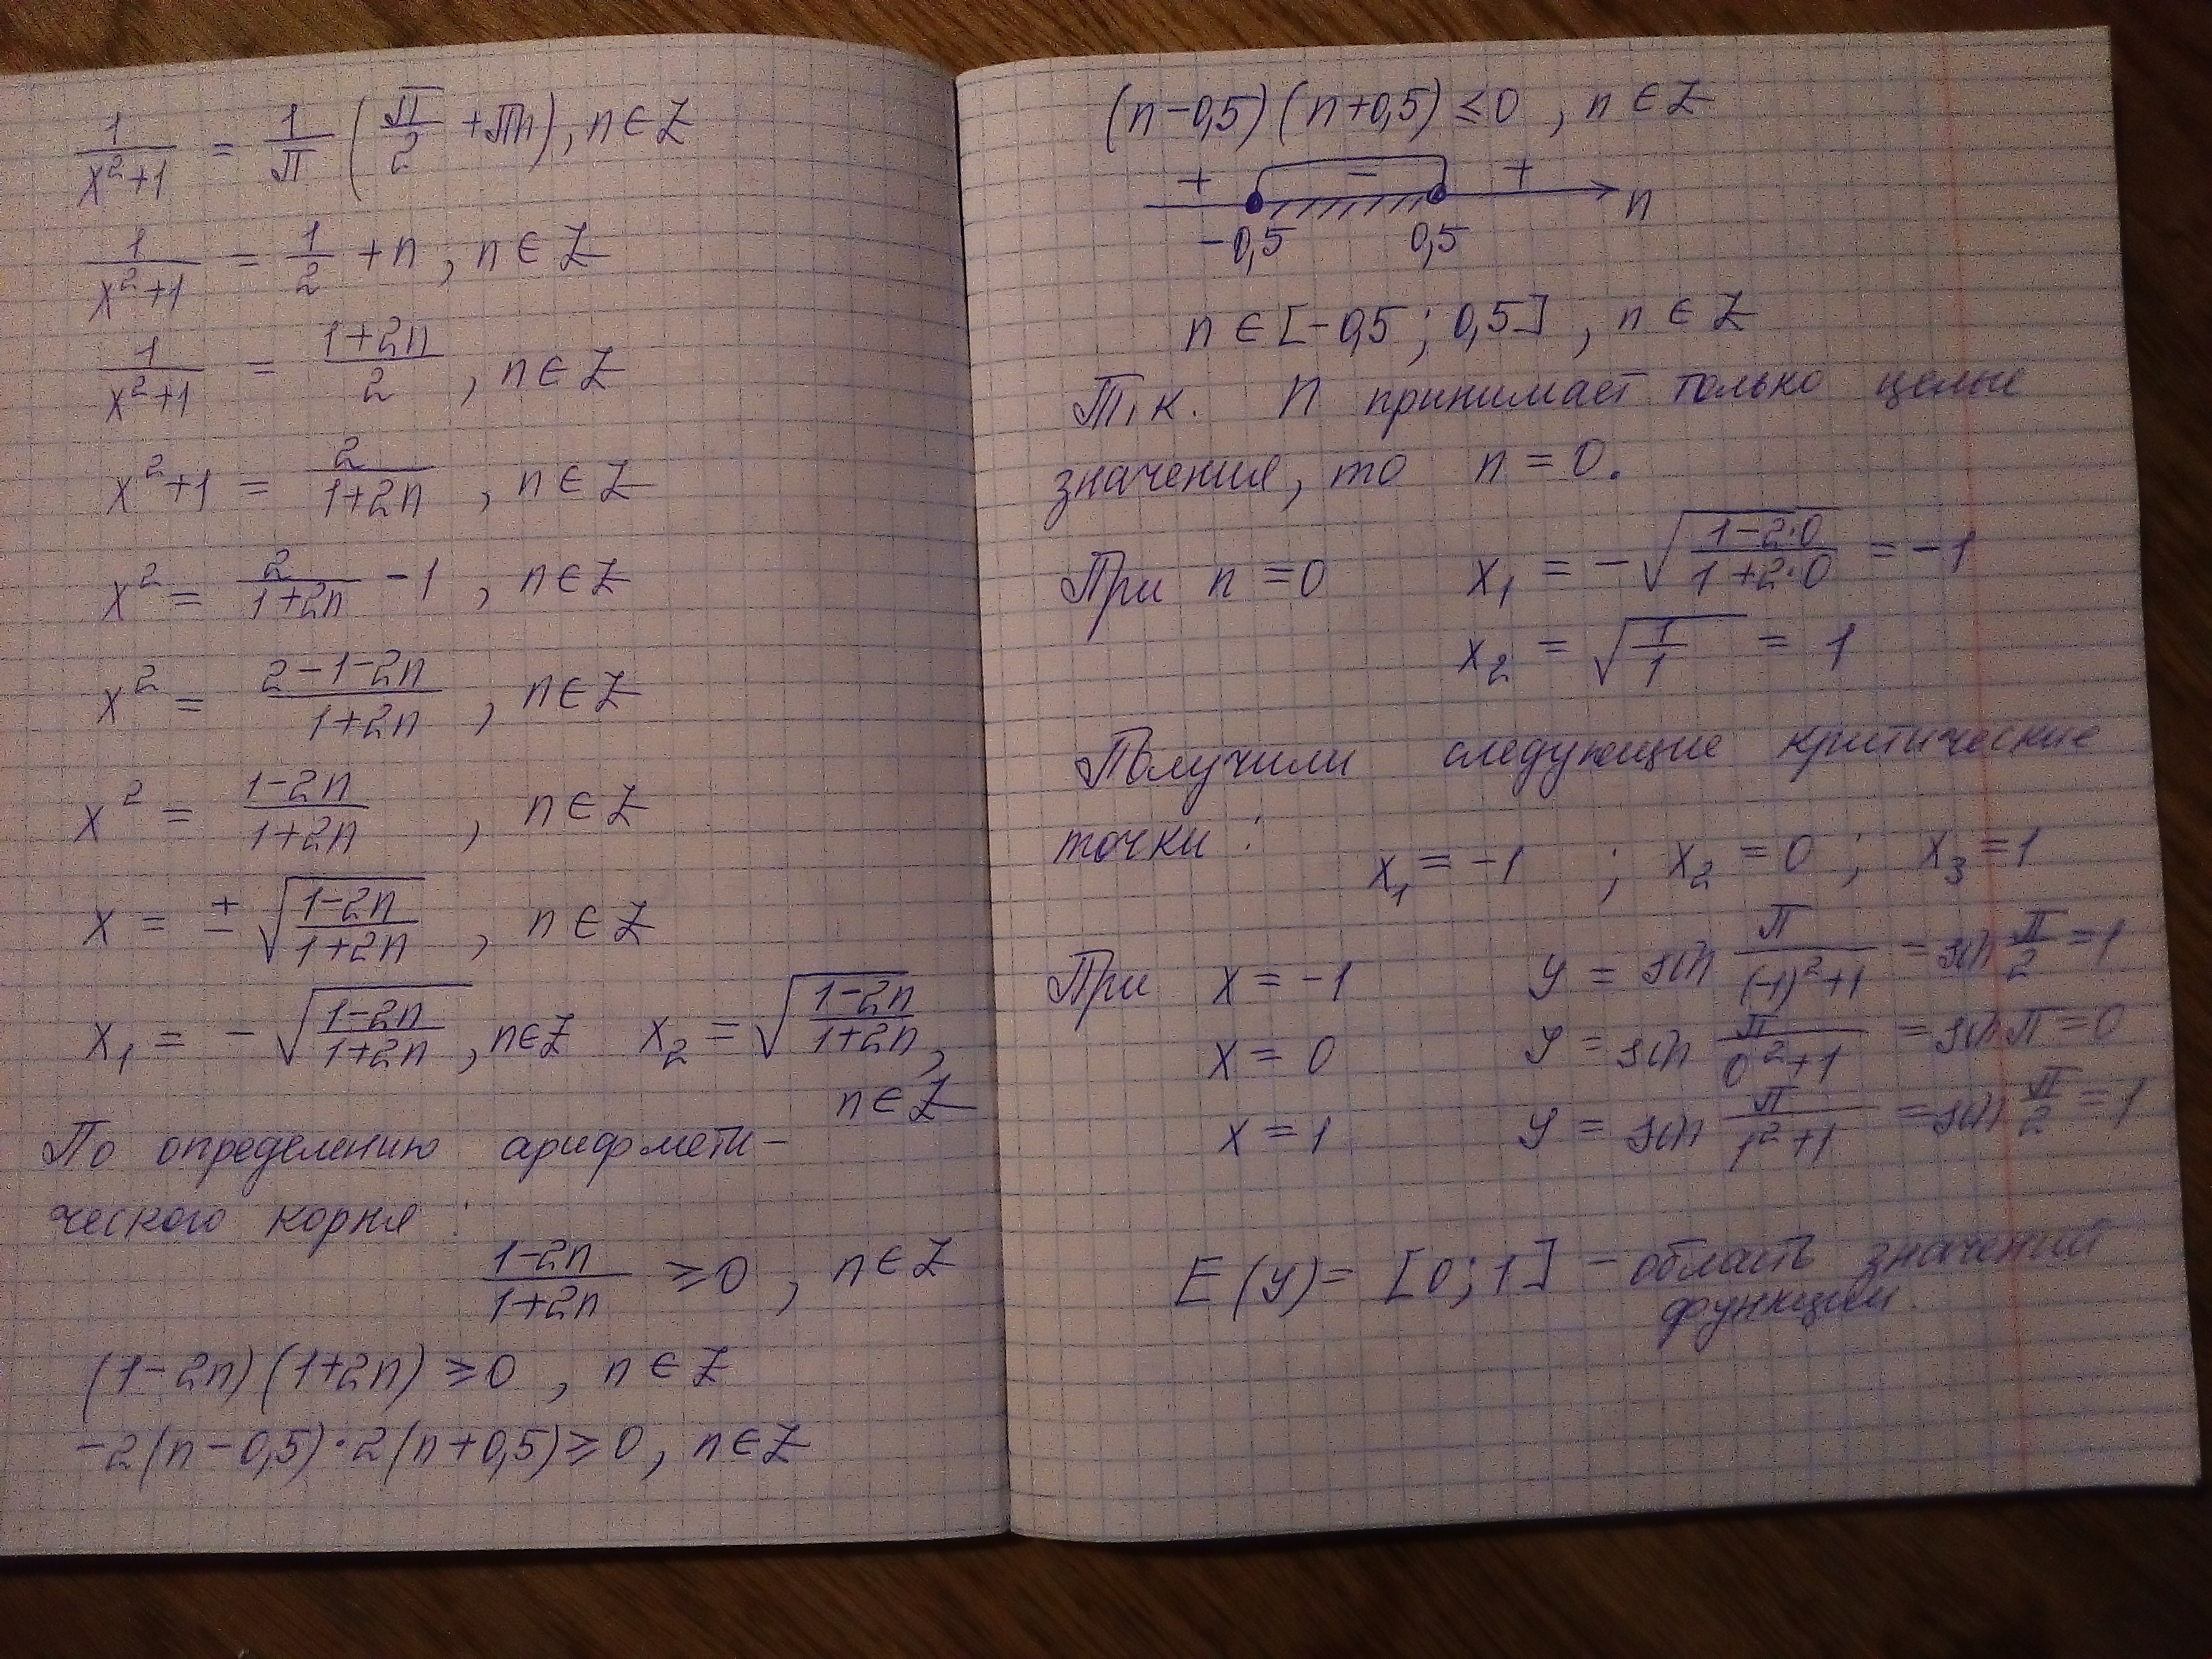 1/(x²+1) = 1/π (π/2 + πn), n ∈ Z
1/(x²+1) = 1/2 + n, n ∈ Z
1/(x²+1) = (1+2n)/2, n ∈ Z
x²+1 = 2/(1+2n), n ∈ Z
x² = 2/(1+2n) - 1, n ∈ Z
x² = (2-1-2n)/(1+2n), n ∈ Z
x² = (1-2n)/(1+2n), n ∈ Z
x = ± √((1-2n)/(1+2n)), n ∈ Z
x₁ = - √((1-2n)/(1+2n)), n∈Z x₂ = √((1-2n)/(1+2n)),
n ∈ Z
По определению арифмети-
ческого корня :
(1-2n)/(1+2n) ≥ 0, n ∈ Z
(1-2n)(1+2n) ≥ 0, n ∈ Z
-2(n-0,5)·2(n+0,5) ≥ 0, n ∈ Z
(n-0,5)(n+0,5) ≤ 0, n ∈ Z
+ - + n
-0,5 0,5
n ∈ [-0,5; 0,5], n ∈ Z
Т.к. n принимает только целые
значения, то n = 0.
При n = 0 x₁ = -√((1-2·0)/(1+2·0)) = -1
x₂ = √(1/1) = 1
Получили следующие критические
точки : x₁ = -1 ; x₂ = 0 ; x₃ = 1
При x = -1 y = sin π/((-1)²+1) = sin π/2 = 1
x = 0 y = sin π/(0²+1) = sin π = 0
x = 1 y = sin π/(1²+1) = sin π/2 = 1
E(y) = [0; 1] - область значений
функции.